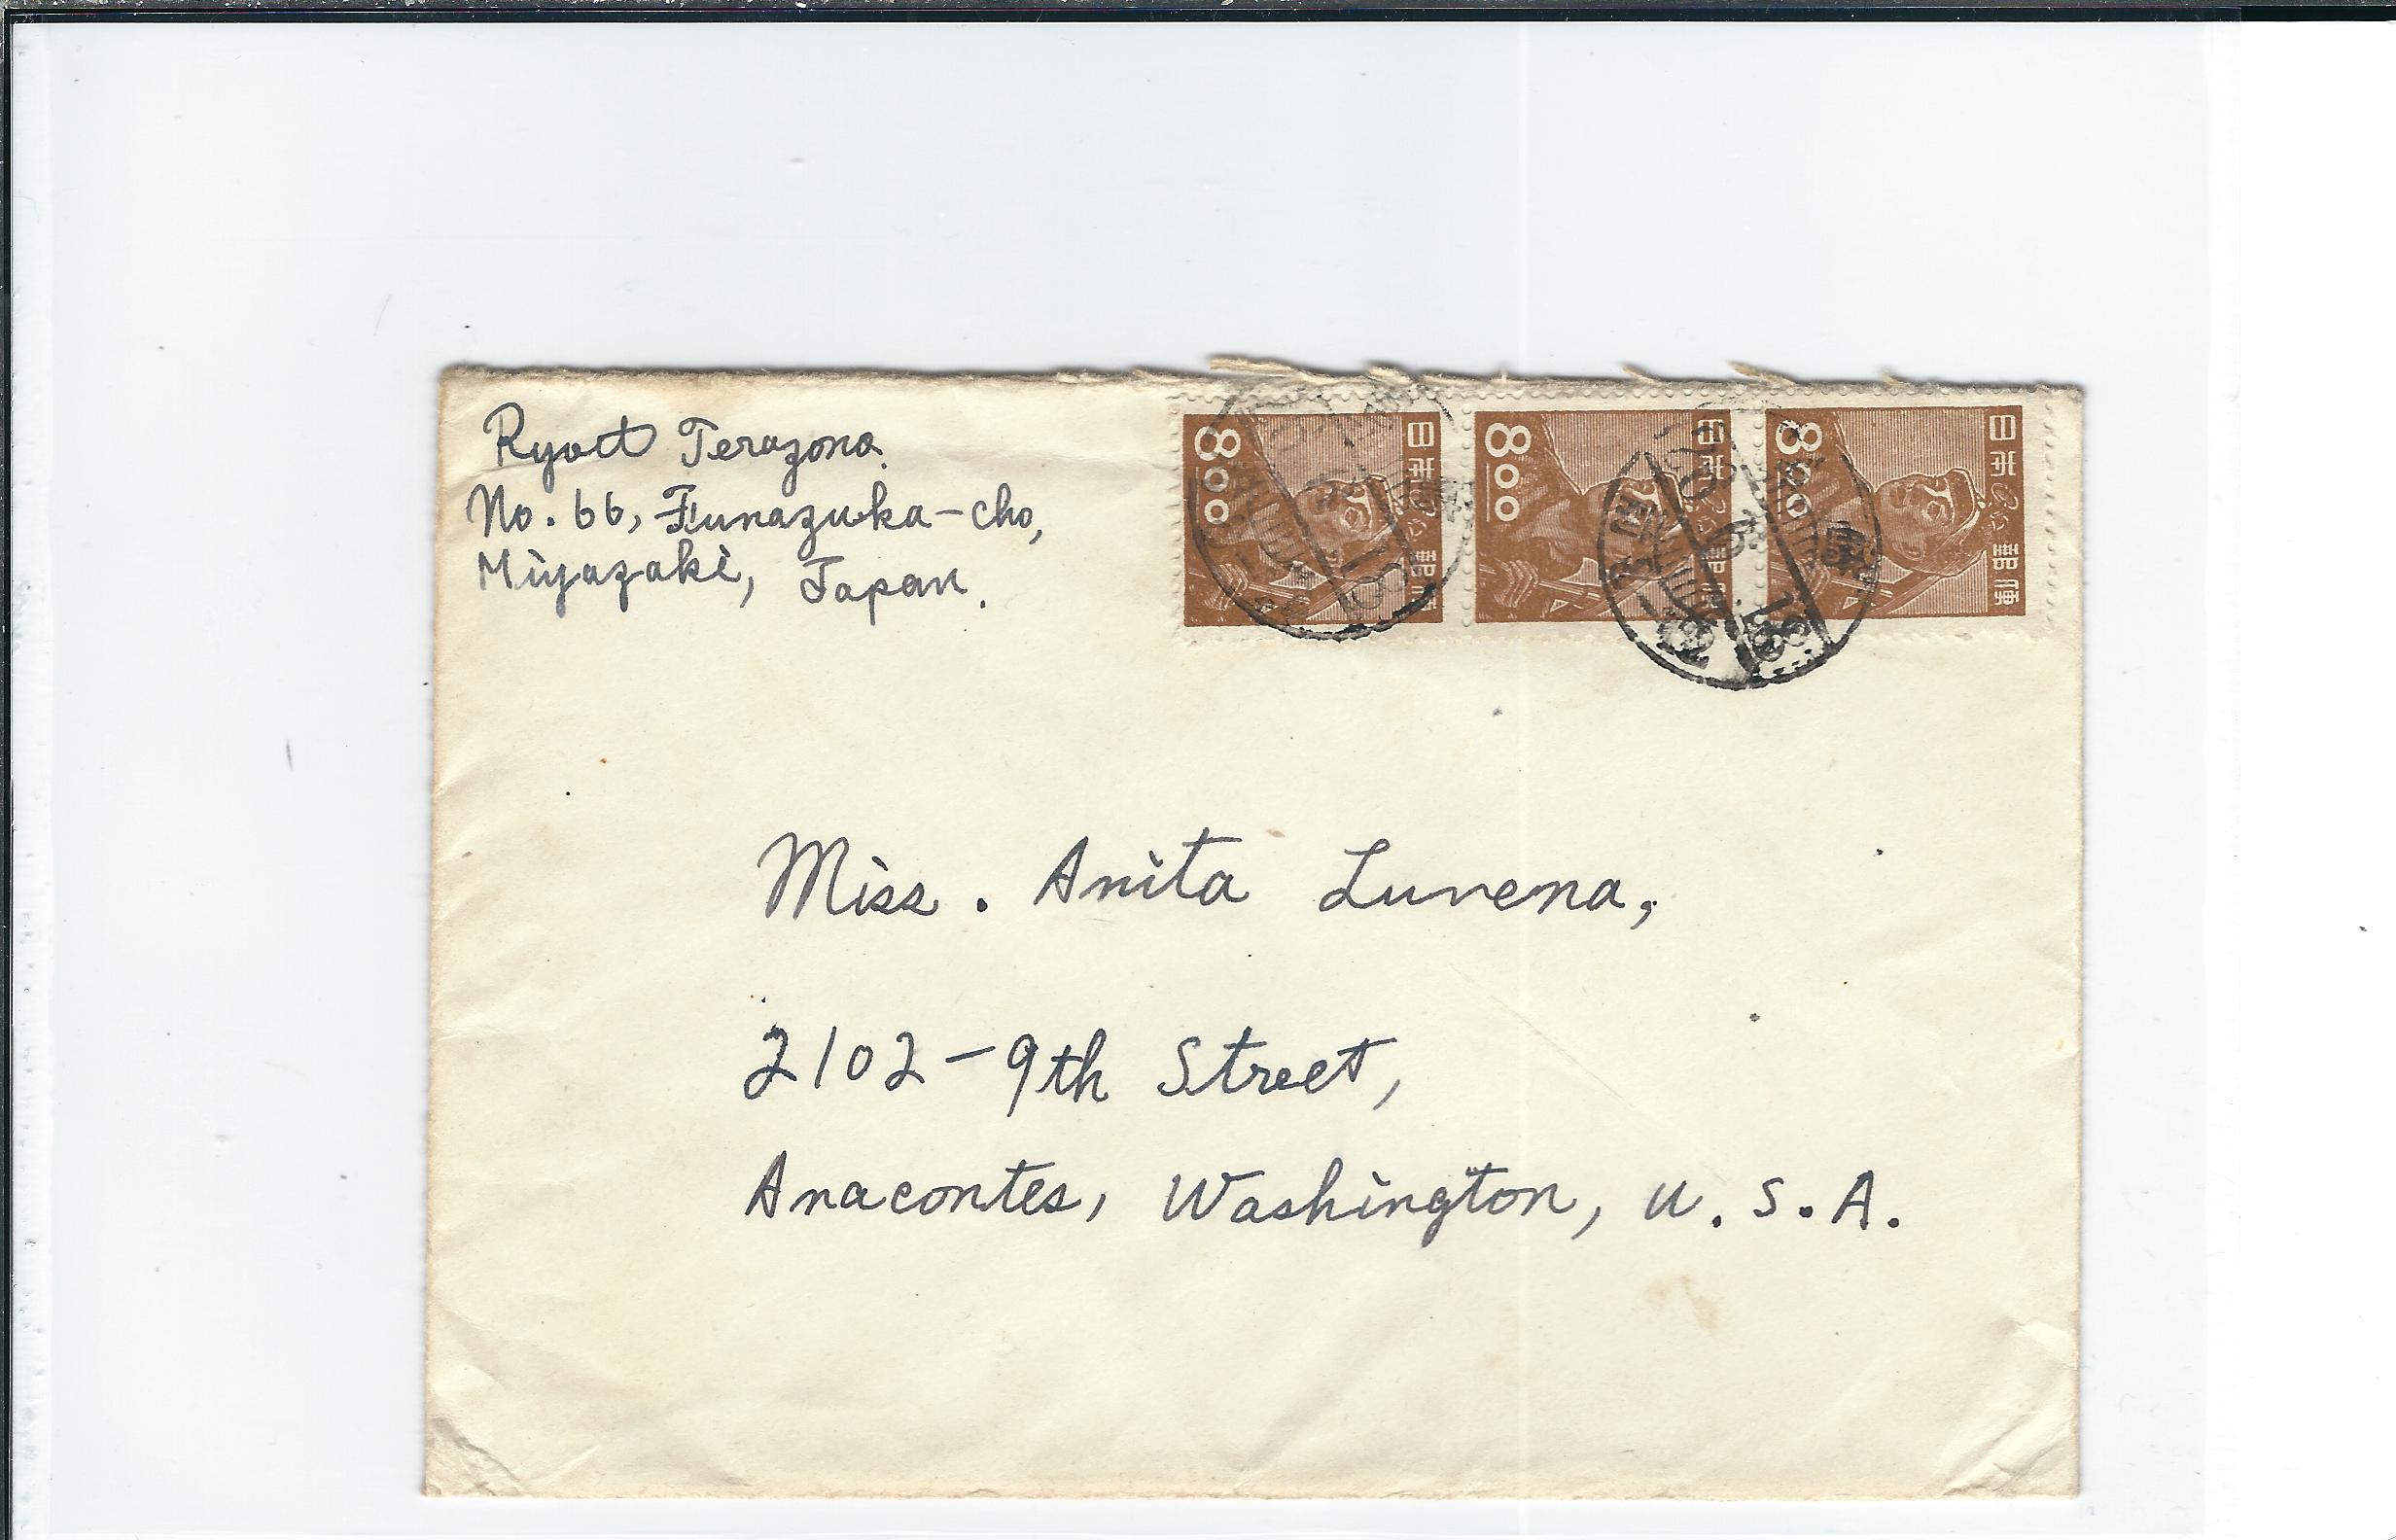 Ryoit Terazono.
No. 66, Funazuka-cho,
Miyazaki, Japan.
8.00 日本郵便
8.00 日本郵便
8.00 日本郵便
Miss. Anita Luvena,
2102-9th Street,
Anacontes, Washington, U.S.A.